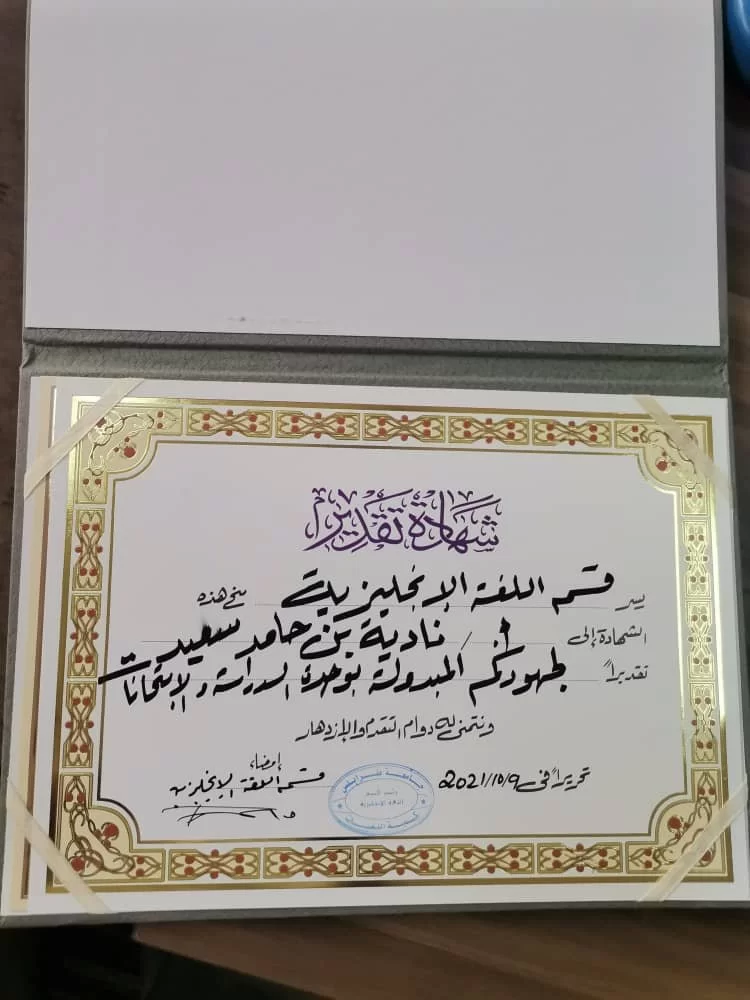 شهادة تقدير
يسر قسم اللغة الإنجليزية منح هذه
الشهادة إلى أ. / نادية بن حامد سعيد
تقديراً لمجهودكم المبذولة بوحدة الدراسة والإمتحانات
ونتمنى له دوام التقدم والإزدهار
تحريراً في 2021/10/9
إمضاء
قسم اللغة الإنجليزية
جامعة طرابلس
كلية اللغات